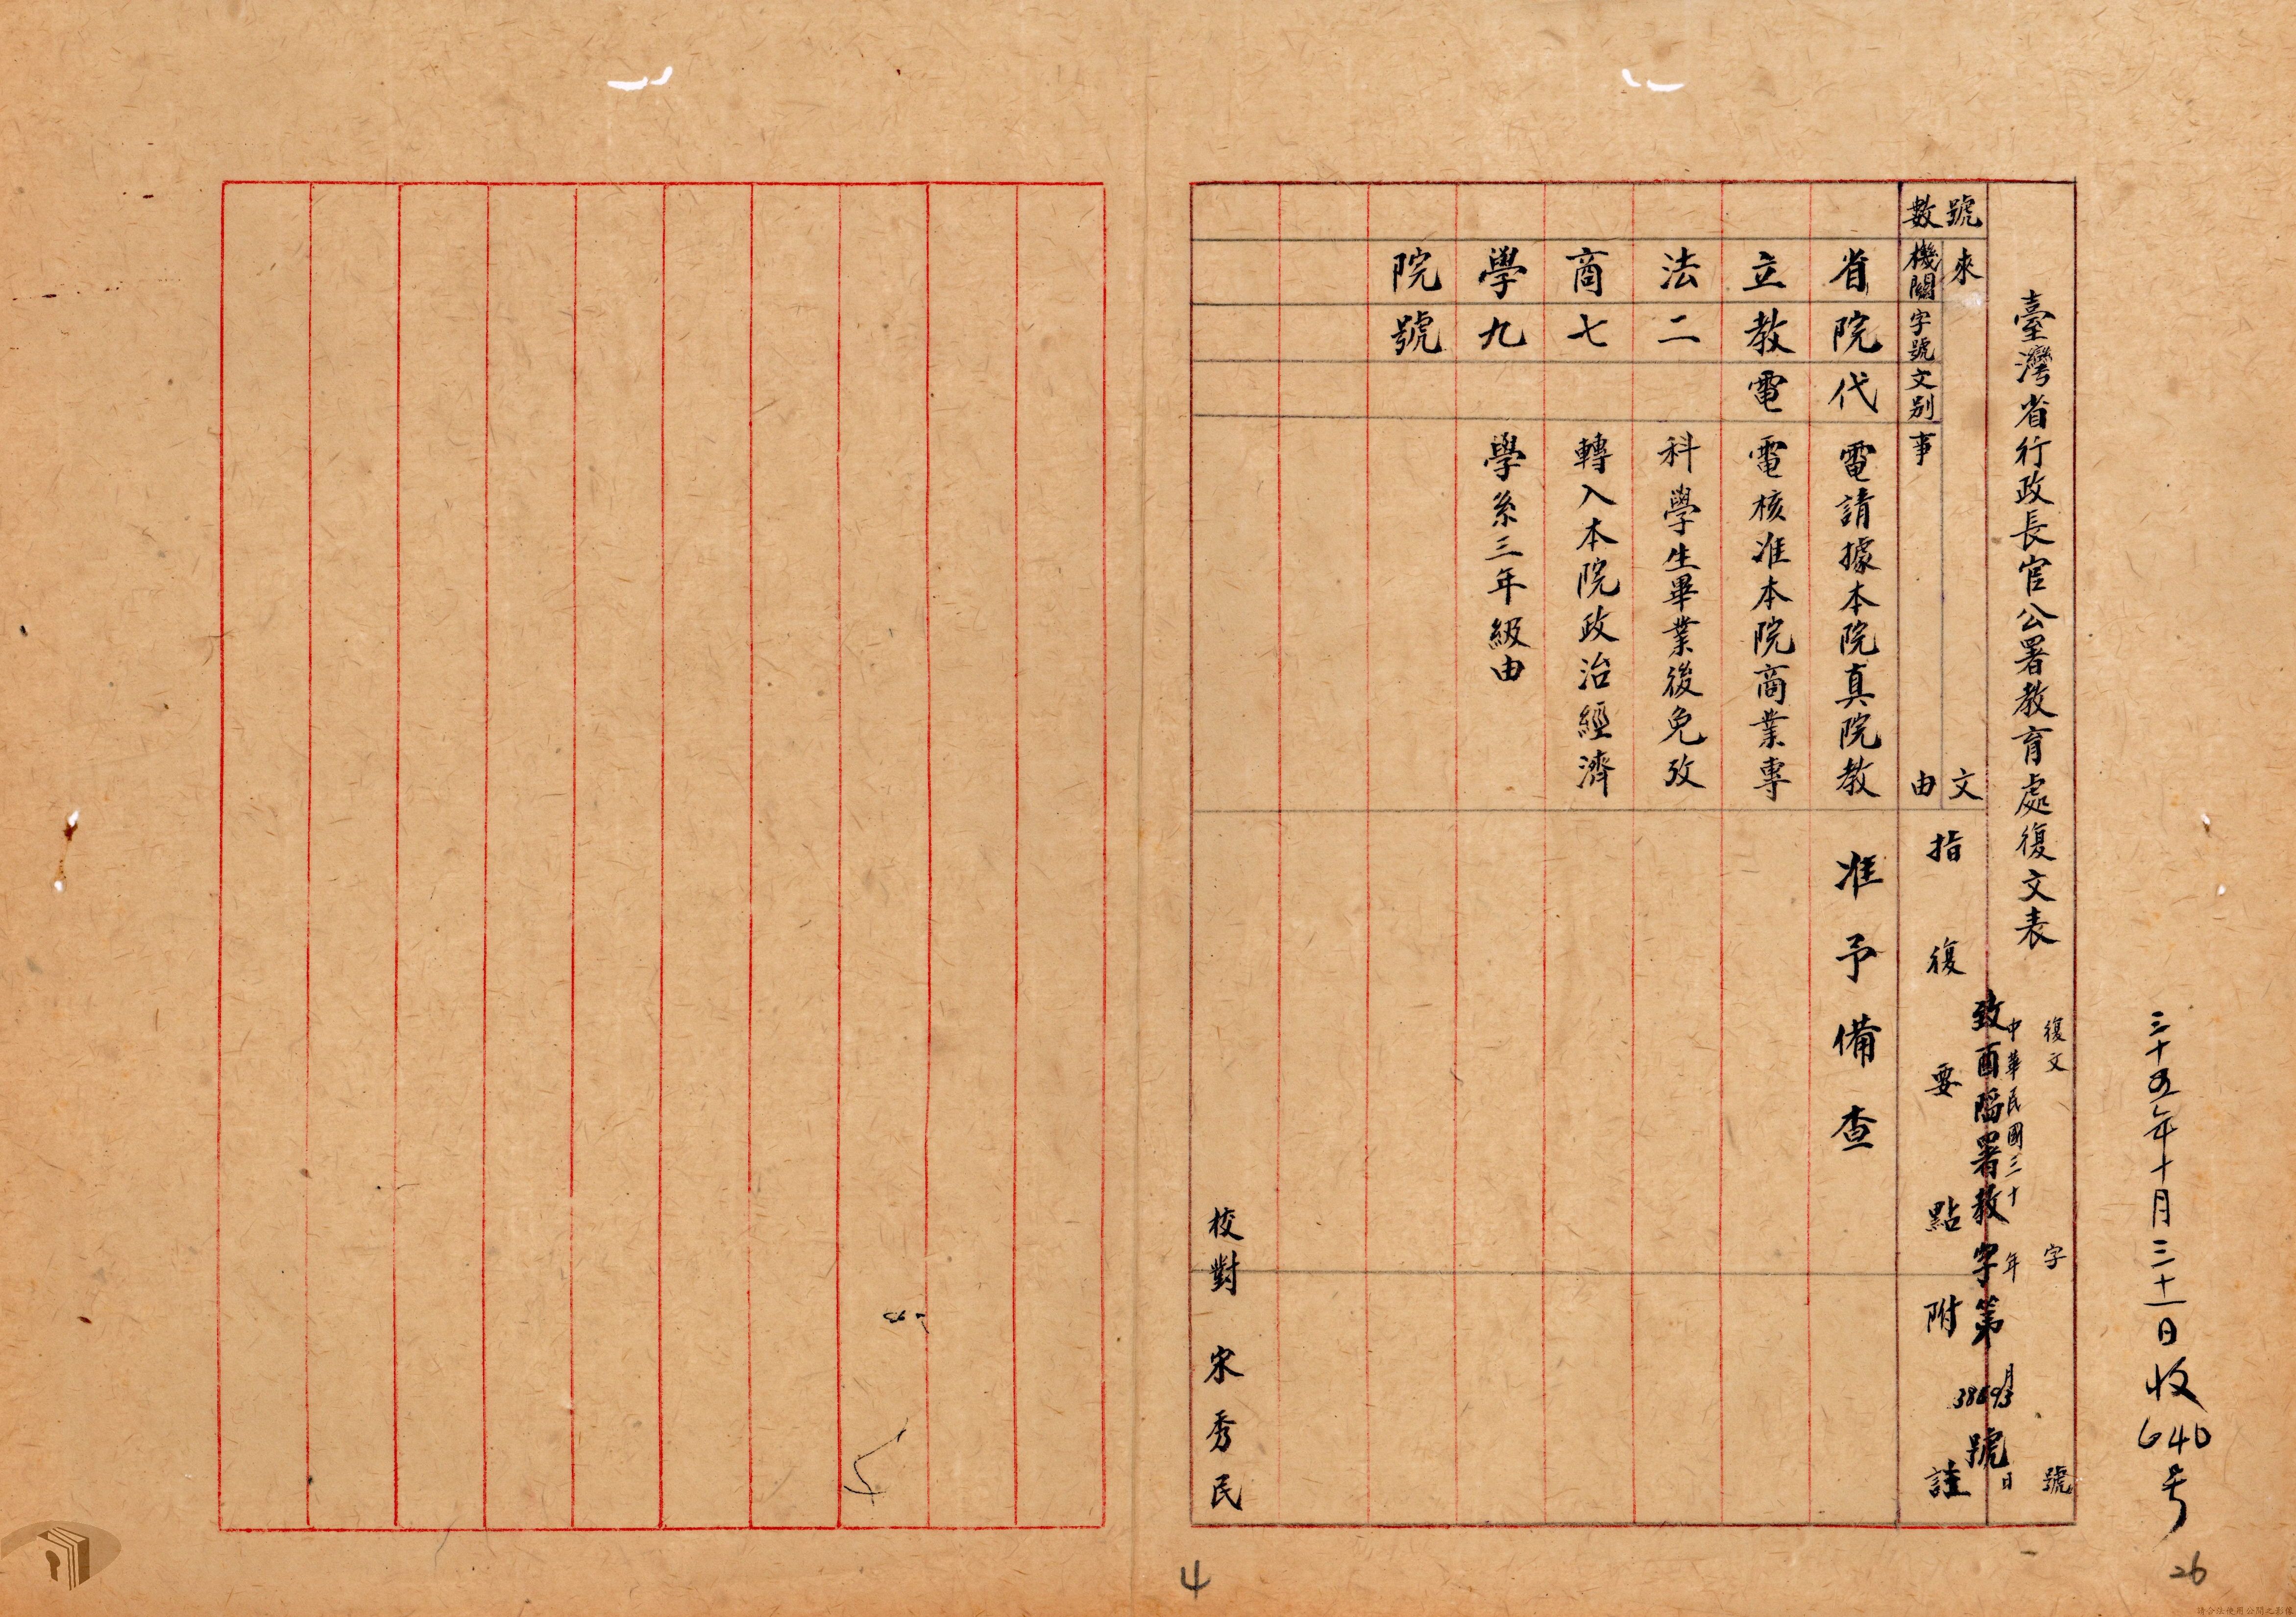 三十五年十月三十一日收640号
臺灣省行政長官公署教育處復文表
復文 字 號
中華民國三十 年 月 日
致酉陷署教字第38693號
號數
來文
機關
字號
文別
事由
指復要點
附註
省立法商學院
院教二七九號
代電
電請據本院真院教
電核准本院商業專
科學生畢業後免攷
轉入本院政治經濟
學系三年級由
准予備查
校對 宋秀民
4
26
請合法使用公開之影像